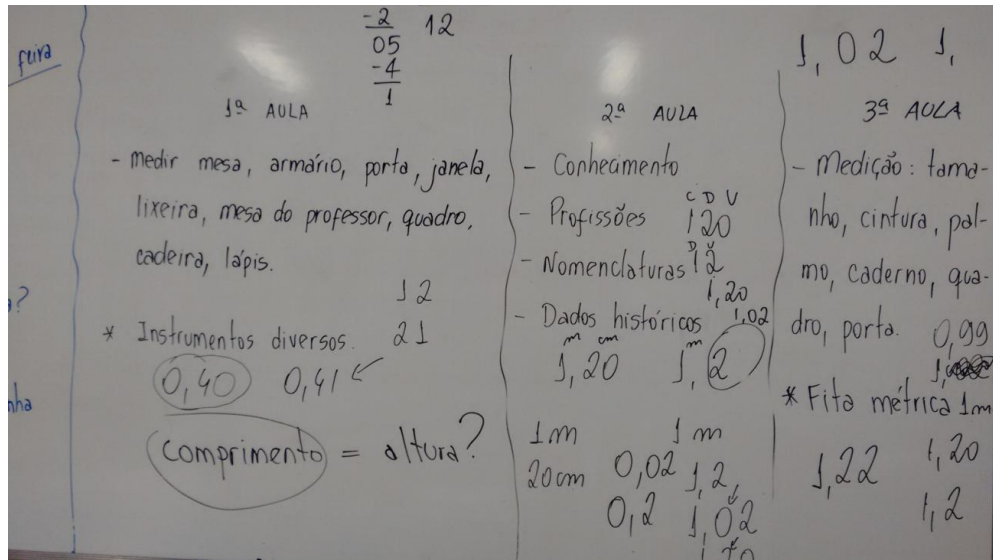 feira
-2
05
-4
1
12
1ª AULA
- medir mesa, armário, porta, janela,
lixeira, mesa do professor, quadro,
cadeira, lápis.
12
* Instrumentos diversos. 21
0,40 0,41
comprimento = altura?
a?
nha
2ª AULA
- Conhecimento
C D U
- Profissões 120
D U
- Nomenclaturas 12
1,20
- Dados históricos 1,02
m cm m
1,20 1,2
1m 1m
20cm 0,02 1,2
0,2 1,02
1, 02 1,
3ª AULA
- Medição: tama-
nho, cintura, pal-
mo, caderno, qua-
dro, porta. 0,99
* Fita métrica 1m
1,22 1,20
1,2